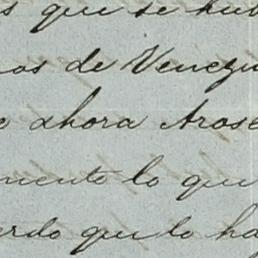 s que se hub
nos de Venezu
o ahora Arose
mento lo que
erdo que lo ha